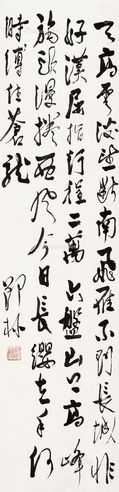 天高雲淡望斷南飛雁不到長城非
好漢屈指行程二萬六盤山上高峰
旄頭漫捲西風今日長纓在手何
時縛住蒼龍